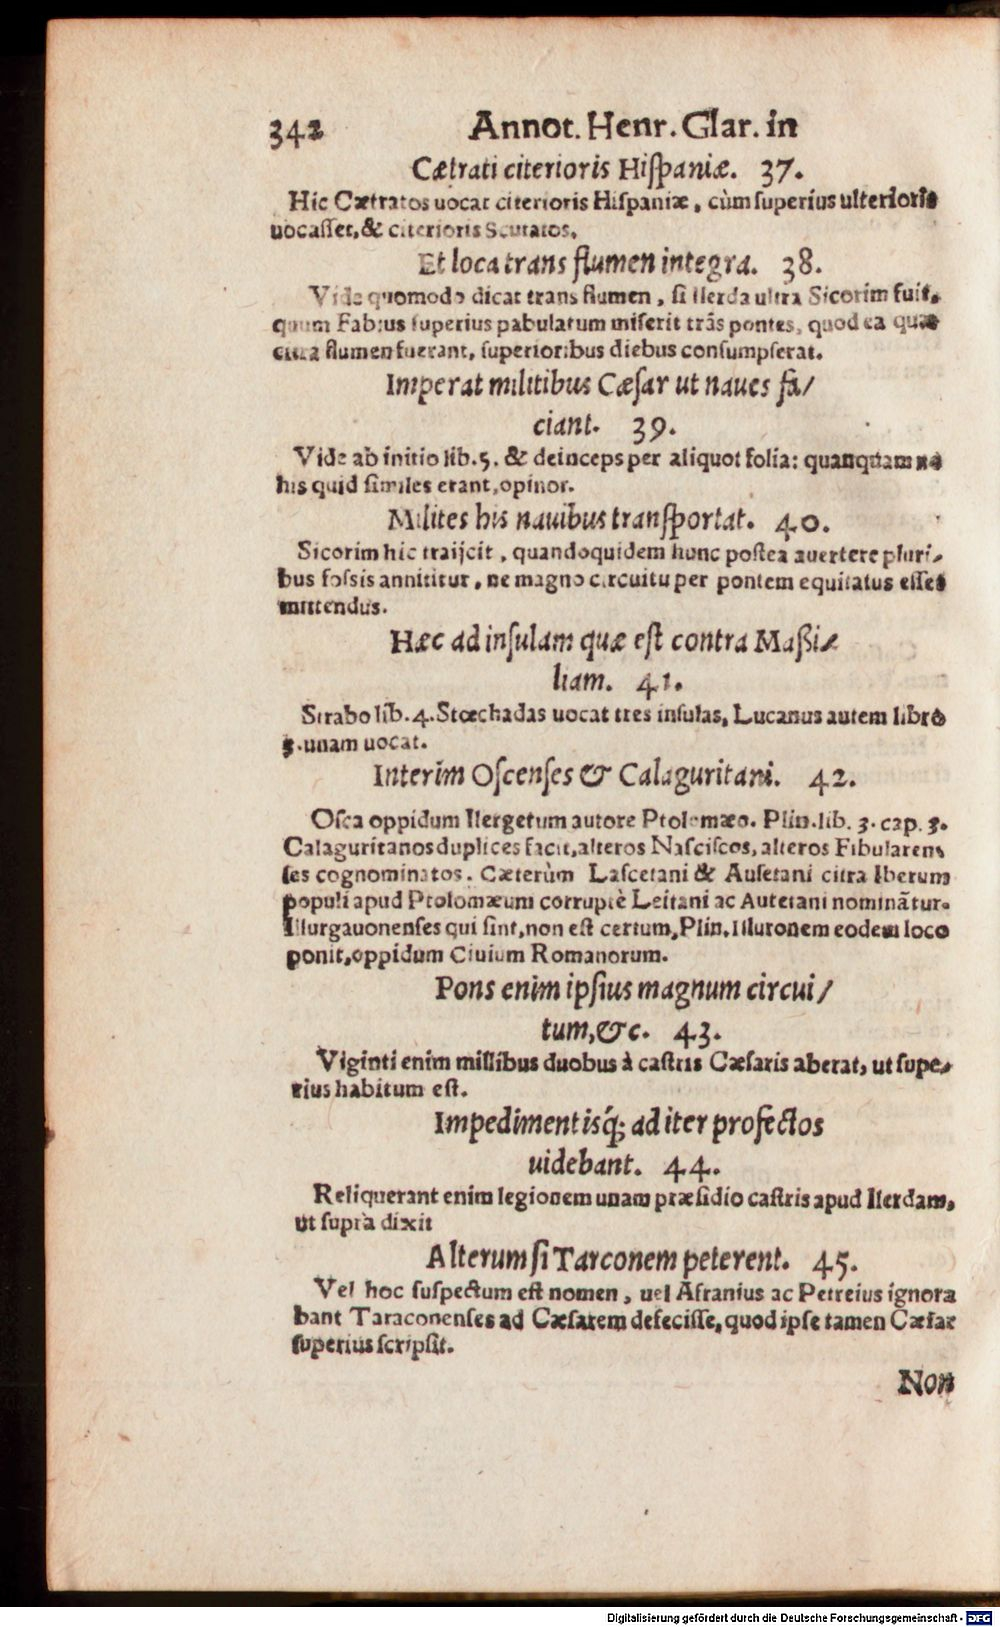 342 Annot. Henr. Glar. in
Cætrati citerioris Hiſpaniæ. 37.
Hic Cætratos uocat citerioris Hiſpaniæ, cùm ſuperius ulterioris
uocaſſet, & citerioris Scutatos.
Et loca trans flumen integra. 38.
Vide quomodo dicat trans flumen, ſi Ilerda ultra Sicorim fuit,
quum Fabius ſuperius pabulatum miſerit trãs pontes, quod ea quæ
citra flumen fuerant, ſuperioribus diebus conſumpſerat.
Imperat militibus Cæſar ut naues fa/
ciant. 39.
Vide ab initio lib. 5. & deinceps per aliquot folia: quanquam nō
his quid ſimiles erant, opinor.
Milites his nauibus tranſportat. 40.
Sicorim hic traijcit, quandoquidem hunc poſtea auertere pluri-
bus foſsis annititur, ne magno circuitu per pontem equitatus eſſet
mittendus.
Hæc ad inſulam quæ eſt contra Maßi-
liam. 41.
Strabo lib. 4. Stœchadas uocat tres inſulas, Lucanus autem libro
3. unam uocat.
Interim Oſcenſes & Calaguritani. 42.
Oſca oppidum Ilergetum autore Ptolomæo. Plin. lib. 3. cap. 3.
Calaguritanos duplices facit, alteros Naſciſcos, alteros Fibularen-
ſes cognominatos. Cæterùm Laſcetani & Auſetani citra Iberum
populi apud Ptolomæum corruptè Leitani ac Autetani nominãtur.
Illurgauonenſes qui ſint, non eſt certum, Plin. Illuronem eodem loco
ponit, oppidum Ciuium Romanorum.
Pons enim ipſius magnum circui/
tum, &c. 43.
Viginti enim millibus duobus à caſtris Cæſaris aberat, ut ſupe-
rius habitum eſt.
Impedimentisq́; ad iter profectos
uidebant. 44.
Reliquerant enim legionem unam præſidio caſtris apud Ilerdam,
ut ſuprà dixit
Alterum ſi Tarconem peterent. 45.
Vel hoc ſuſpectum eſt nomen, uel Afranius ac Petreius ignora
bant Taraconenſes ad Cæſarem defeciſſe, quod ipſe tamen Cæſar
ſuperius ſcripſit.
Non
Digitalisierung gefördert durch die Deutsche Forschungsgemeinschaft - DFG